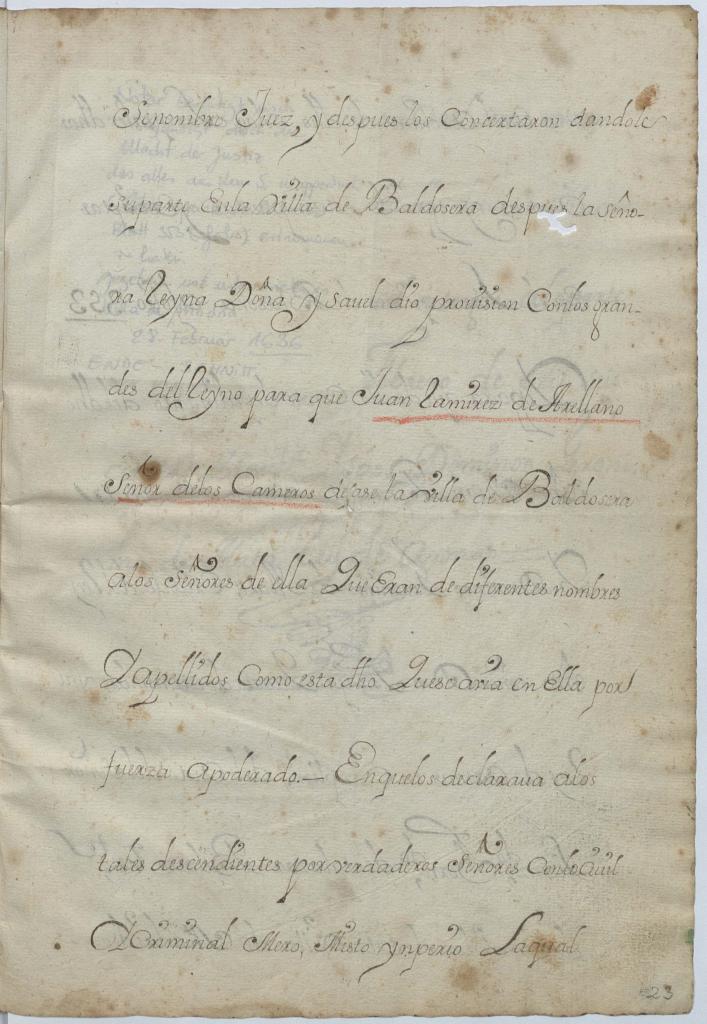 Senombro Juez, y despues los Concertaron dandole
suparte Enla Villa de Baldosera despues la Seño-
ra Reyna Doña Ysavel dio provision Conlos gran-
des del Reyno para que Juan Ramirez de Arellano
Señor delos Cameros dejase la Villa de Baldosera
alos Señores de ella Que Eran de diferentes nombres
Yapellidos Como esta dho Quescaria en Ella por
fuerza apoderado.— Enquelos declaraua alos
tales descendientes por verdaderos Señores Conlo Ciuil
YCriminal Mero, Misto ynperio Laqual
23